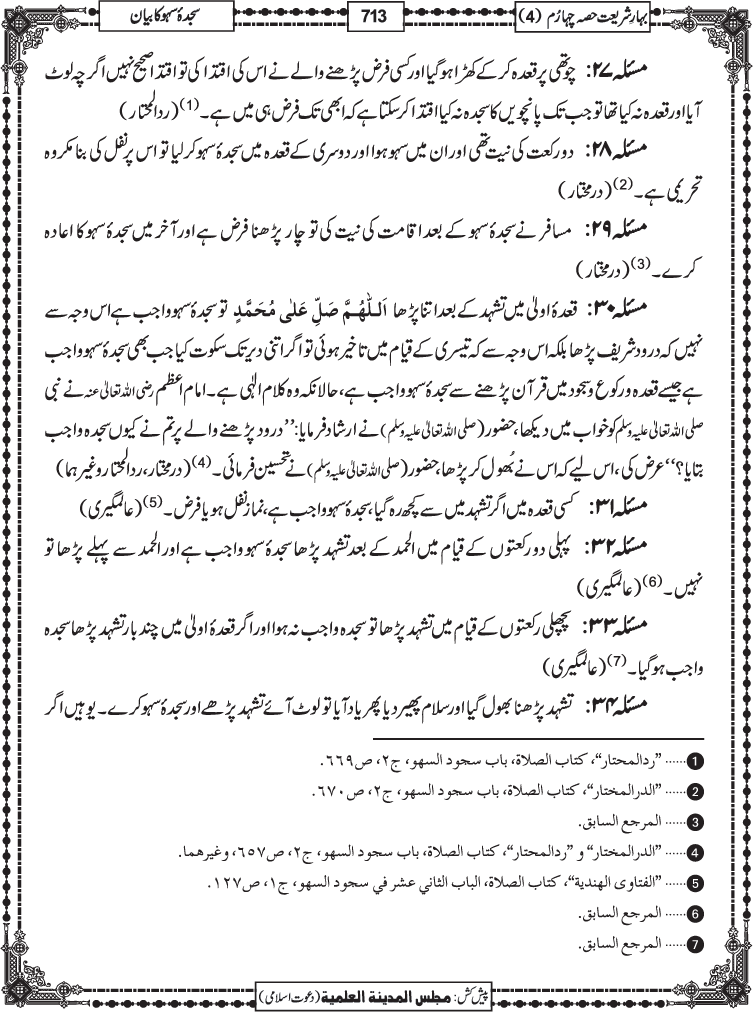 بہارِ شریعت حصہ چہارُم (4)
713
سجدۂ سہو کا بیان
مسئلہ ۲۷: چوتھی پر قعدہ کر کے کھڑا ہو گیا اور کسی فرض پڑھنے والے نے اس کی اقتدا کی تو اقتدا صحیح نہیں اگرچہ لوٹ
آیا اور قعدہ نہ کیا تھا تو جب تک پانچویں کا سجدہ نہ کیا اقتدا کر سکتا ہے کہ ابھی تک فرض ہی میں ہے۔ (1) (ردالمحتار)
مسئلہ ۲۸: دو رکعت کی نیت تھی اور ان میں سہو ہوا اور دوسری کے قعدہ میں سجدۂ سہو کر لیا تو اس پر نفل کی بنا مکروہ
تحریمی ہے۔ (2) (درمختار)
مسئلہ ۲۹: مسافر نے سجدۂ سہو کے بعد اقامت کی نیت کی تو چار پڑھنا فرض ہے اور آخر میں سجدۂ سہو کا اعادہ
کرے۔ (3) (درمختار)
مسئلہ ۳۰: قعدۂ اولیٰ میں تشہد کے بعد اتنا پڑھا اَللّٰھُمَّ صَلِّ عَلٰی مُحَمَّدٍ تو سجدۂ سہو واجب ہے اس وجہ سے
نہیں کہ درود شریف پڑھا بلکہ اس وجہ سے کہ تیسری کے قیام میں تاخیر ہوئی تو اگر اتنی دیر تک سکوت کیا جب بھی سجدۂ سہو واجب
ہے جیسے قعدہ و رکوع و سجود میں قرآن پڑھنے سے سجدۂ سہو واجب ہے، حالانکہ وہ کلامِ الٰہی ہے۔ امام اعظم رضی اللہ تعالیٰ عنہ نے نبی
صلی اللہ تعالیٰ علیہ وسلم کو خواب میں دیکھا، حضور (صلی اللہ تعالیٰ علیہ وسلم) نے ارشاد فرمایا: ’’درود پڑھنے والے پر تم نے کیوں سجدہ واجب
بتایا؟‘‘ عرض کی، اس لیے کہ اس نے بُھول کر پڑھا، حضور (صلی اللہ تعالیٰ علیہ وسلم) نے تحسین فرمائی۔ (4) (درمختار، ردالمحتار وغیرہما)
مسئلہ ۳۱: کسی قعدہ میں اگر تشہد میں سے کچھ رہ گیا، سجدۂ سہو واجب ہے، نماز نفل ہو یا فرض۔ (5) (عالمگیری)
مسئلہ ۳۲: پہلی دو رکعتوں کے قیام میں الحمد کے بعد تشہد پڑھا سجدۂ سہو واجب ہے اور الحمد سے پہلے پڑھا تو
نہیں۔ (6) (عالمگیری)
مسئلہ ۳۳: پچھلی رکعتوں کے قیام میں تشہد پڑھا تو سجدہ واجب نہ ہوا اور اگر قعدۂ اولیٰ میں چند بار تشہد پڑھا سجدہ
واجب ہو گیا۔ (7) (عالمگیری)
مسئلہ ۳۴: تشہد پڑھنا بھول گیا اور سلام پھیر دیا پھر یاد آیا تو لوٹ آئے تشہد پڑھے اور سجدۂ سہو کرے۔ یوہیں اگر
1 ...... ”ردالمحتار“، کتاب الصلاۃ، باب سجود السھو، ج۲، ص۶۶۹.
2 ...... ”الدرالمختار“، کتاب الصلاۃ، باب سجود السھو، ج۲، ص۶۷۰.
3 ...... المرجع السابق.
4 ...... ”الدرالمختار“ و ”ردالمحتار“، کتاب الصلاۃ، باب سجود السھو، ج۲، ص۶۵۷، وغیرھما.
5 ...... ”الفتاوی الھندیۃ“، کتاب الصلاۃ، الباب الثاني عشر في سجود السھو، ج۱، ص۱۲۷.
6 ...... المرجع السابق.
7 ...... المرجع السابق.
پیش کش: مجلس المدینۃ العلمیۃ (دعوتِ اسلامی)